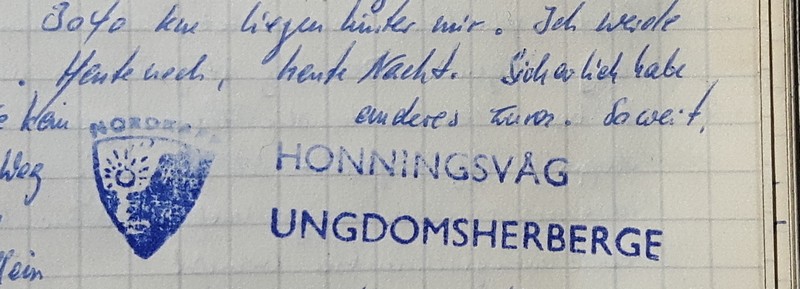 3040 km liegen hinter mir. Ich werde
. Heute noch, heute Nacht. Sicherlich habe
kein anderes zuvor. Soweit,
NORDKAPP
Weg
HONNINGSVÅG
UNGDOMSHERBERGE